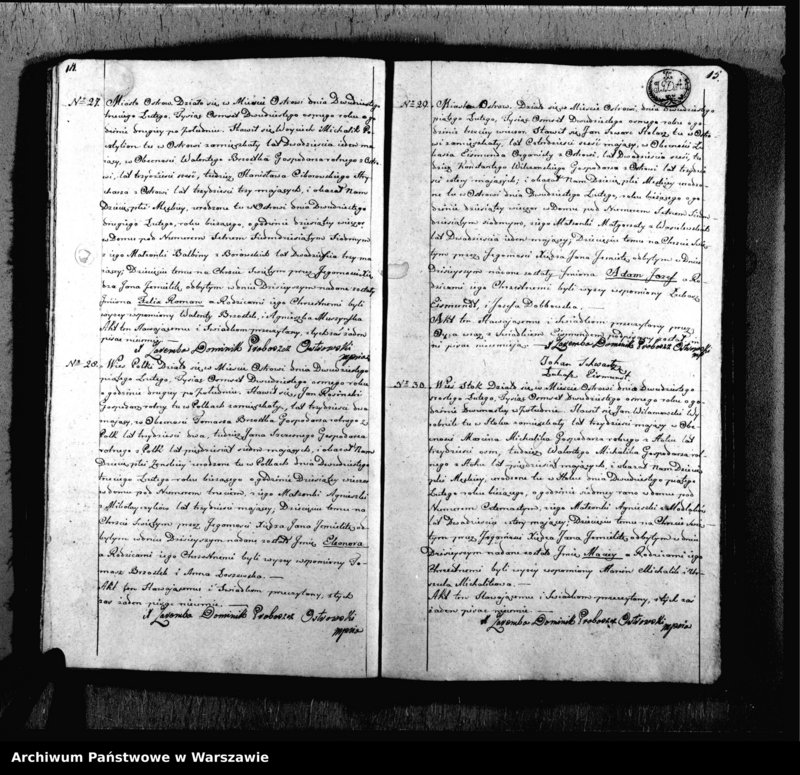 14.
Nº 27. Miasto Ostrow. Działo się w Mieście Ostrowi dnia Dwudziestego
trzeciego Lutego, Tysiąc Ośmset Dwudziestego osmego roku o go-
dzinie drugiey po Południu. Stawił się Woyciech Michalik Po-
stylion tu w Ostrowi zamieszkały lat Dwadzieścia ieden ma-
iący, w Obecności Walentego Brzostka Gospodarza rolnego z Ostro-
wi, lat trzydzieści sześć, tudzież Stanisława
z Ostrowi lat trzydzieści trzy maiących, i okazał Nam
Dziecię płci Męskiey, urodzone tu w Ostrowi dnia Dwudziestego
drugiego Lutego, roku bieżącego, o godzinie dziesiątey wieczor
w Domu pod Numerem Setnem Siedmdziesiątym Siodmym
z iego Małżonki Balbiny z lat Dwadzieścia trzy ma-
iącey; Dziecięciu temu na Chrzcie Świętym przez Jegomości Xię-
dza Jana Jemielitę, odbytym w dniu Dzisieyszym nadane zostały
Jmiona Felix Roman a Rodzicami iego Chrzestnemi byli
wyżey wspomniony Walenty Brzostek, i Agnieszka
Akt ten Stawaiącemu i Świadkom przeczytany, z tych zaś żaden
pisać nieumie. —
X Zaremba Dominik Proboszcz Ostrowski
mpria
Nº 28. Wieś Polki Działo się w Mieście Ostrowi dnia Dwudziestego
piątego Lutego, Tysiąc Ośmset Dwudziestego osmego roku
o godzinie drugiey po Południu. Stawił się, Jan Kosinski
Gospodarz rolny tu w Polkach zamieszkały, lat trzydzieści dwa
maiący, w Obecności Tomasza Brzostka Gospodarza rolnego z
Polk lat trzydzieści dwa, tudzież Jana Gospodarza
rolnego z Polk lat pięćdziesiąt siedem maiących, i okazał Nam
Dziecię płci Żenskiey urodzone tu w Polkach dnia Dwudziestego
trzeciego Lutego roku bieżącego o godzinie Dziesiątey wieczor
w domu pod Numerem trzecim, z iego Małżonki Agnieszki
z lat trzydzieści maiącey, Dziecięciu temu na
Chrzcie Świętym przez Jegomości Xiędza Jana Jemielitę od-
bytym w dniu Dzisieyszym nadane zostało Jmię Eleonora
a Rodzicami iego Chrzestnemi byli wyżey wspomniony To-
masz Brzostek i Anna
Akt ten Stawaiącemu i Świadkom przeczytany, z tych
zaś żaden pisać nieumie. —
X Zaremba Dominik Proboszcz Ostrowski
mpria
15.
Nº 29. Miasto Ostrow. Działo się w Mieście Ostrowi, dnia Dwudziestego
piątego Lutego, Tysiąc Ośmset Dwudziestego osmego roku o go-
dzinie trzeciey wieczor. Stawił się Jan Stolarz tu w Ostro-
wi zamieszkały, lat Czterdzieści sześć maiący, w Obecności Łu-
kasza Eismunda Organisty z Ostrowi, lat Dwadzieścia sześć, tu-
dzież Konstantego Gospodarza z Ostrowi lat trzydzie-
ści cztery maiących, i okazał Nam Dziecię płci Męskiey urodzo-
ne tu w Ostrowi dnia Dwudziestego Lutego, roku bieżącego o go-
dzinie dziesiątey wieczor w Domu pod Numerem Setnem Siedm-
dziesiątym siodmym, z iego Małżonki Małgorzaty z
lat Dwadzieścia ieden maiącey, Dziecięciu temu na Chrzcie Świę-
tym przez Jegomości Xiędza Jana Jemielitę odbytym w dniu
Dzisieyszym nadane zostały Jmiona Adam Jozef a Ro-
dzicami iego Chrzestnemi byli wyżey wspomniony Łukasz
Eismundt, i Jozefa
Akt ten Stawaiącemu i Świadkom przeczytany przez
Oyca wraz z Świadkiem Eismundem podpisany
ni pisać nieumieią. — X Zaremba Dominik Proboszcz Ostrowski
Johan Schwartz
Łukasz Eismundt
Nº 30. Wieś Stok Działo się w Mieście Ostrowi dnia Dwudziestego
szostego Lutego, Tysiąc Ośmset Dwudziestego osmego roku o go-
dzinie dwunastey w Południe. Stawił się Jan Wilanowski Wy-
robnik tu w Stoku zamieszkały lat trzydzieści maiący w Obe-
cności Marcina Michalika Gospodarza rolnego z Stoku lat
trzydzieści osm, tudzież Walentego Michalika Gospodarza rol-
nego z Stoku lat pięćdziesiąt maiących, i okazał Nam Dziecię
płci Męskiey, urodzone tu w Stoku dnia Dwudziestego piątego
Lutego roku bieżącego, o godzinie siodmey rano w domu pod
Numerem Czternastym, z iego Małżonki Agnieszki z
lat Dwadzieścia cztery maiącey, Dziecięciu temu na Chrzcie Świę-
tym przez Jegomości Xiędza Jana Jemielitę odbytym w dniu
Dzisieyszym nadane zostało Jmię Maciey a Rodzicami iego
Chrzestnemi byli wyżey wspomniony Marcin Michalik i Ur-
szula Michalikowa. —
Akt ten Stawaiącemu i Świadkom przeczytany, z tych zaś
żaden pisać nieumie. —
X Zaremba Dominik Proboszcz Ostrowski
mpria
Archiwum Państwowe w Warszawie